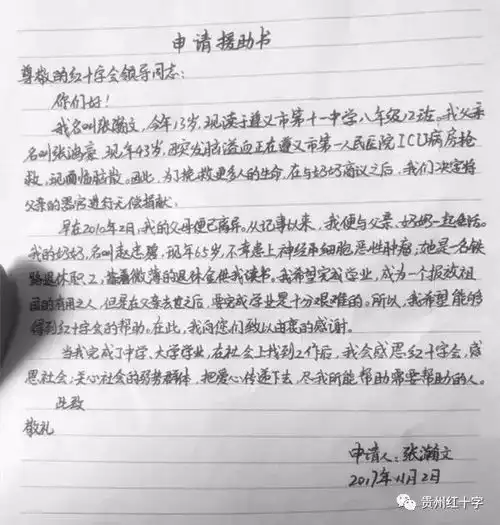 申请援助书
尊敬的红十字会领导同志：
你们好！
我名叫张瀚文，今年13岁，现读于遵义市第十一中学八年级12班。我父亲
名叫张鸿意，现年43岁，因突发脑溢血正在遵义市第一人民医院ICU病房抢
救，现面临脑散。因此，为了挽救更多人的生命，在与奶奶商议之后，我们决定将
父亲的器官进行无偿捐献。
早在2010年2月，我的父母便已离异。从记事以来，我便与父亲、奶奶一起生活。
我的奶奶，名叫赵忠碧，现年65岁，不幸患上神经母细胞恶性肿瘤；她是一名铁
路退休职工，靠着微薄的退休金供我读书。我希望完成学业，成为一个报效祖
国的有用之人，但是在父亲去世之后，要完成学业是十分艰难的。所以，我希望能够
得到红十字会的帮助。在此，我向您们致以由衷的感谢。
当我完成了中学、大学学业，在社会上找到工作后，我会感恩红十字会，感
恩社会，关心社会的弱势群体，把爱心传递下去，尽我所能帮助需要帮助的人。
此致
敬礼
申请人：张瀚文
2017年11月2日
贵州红十字